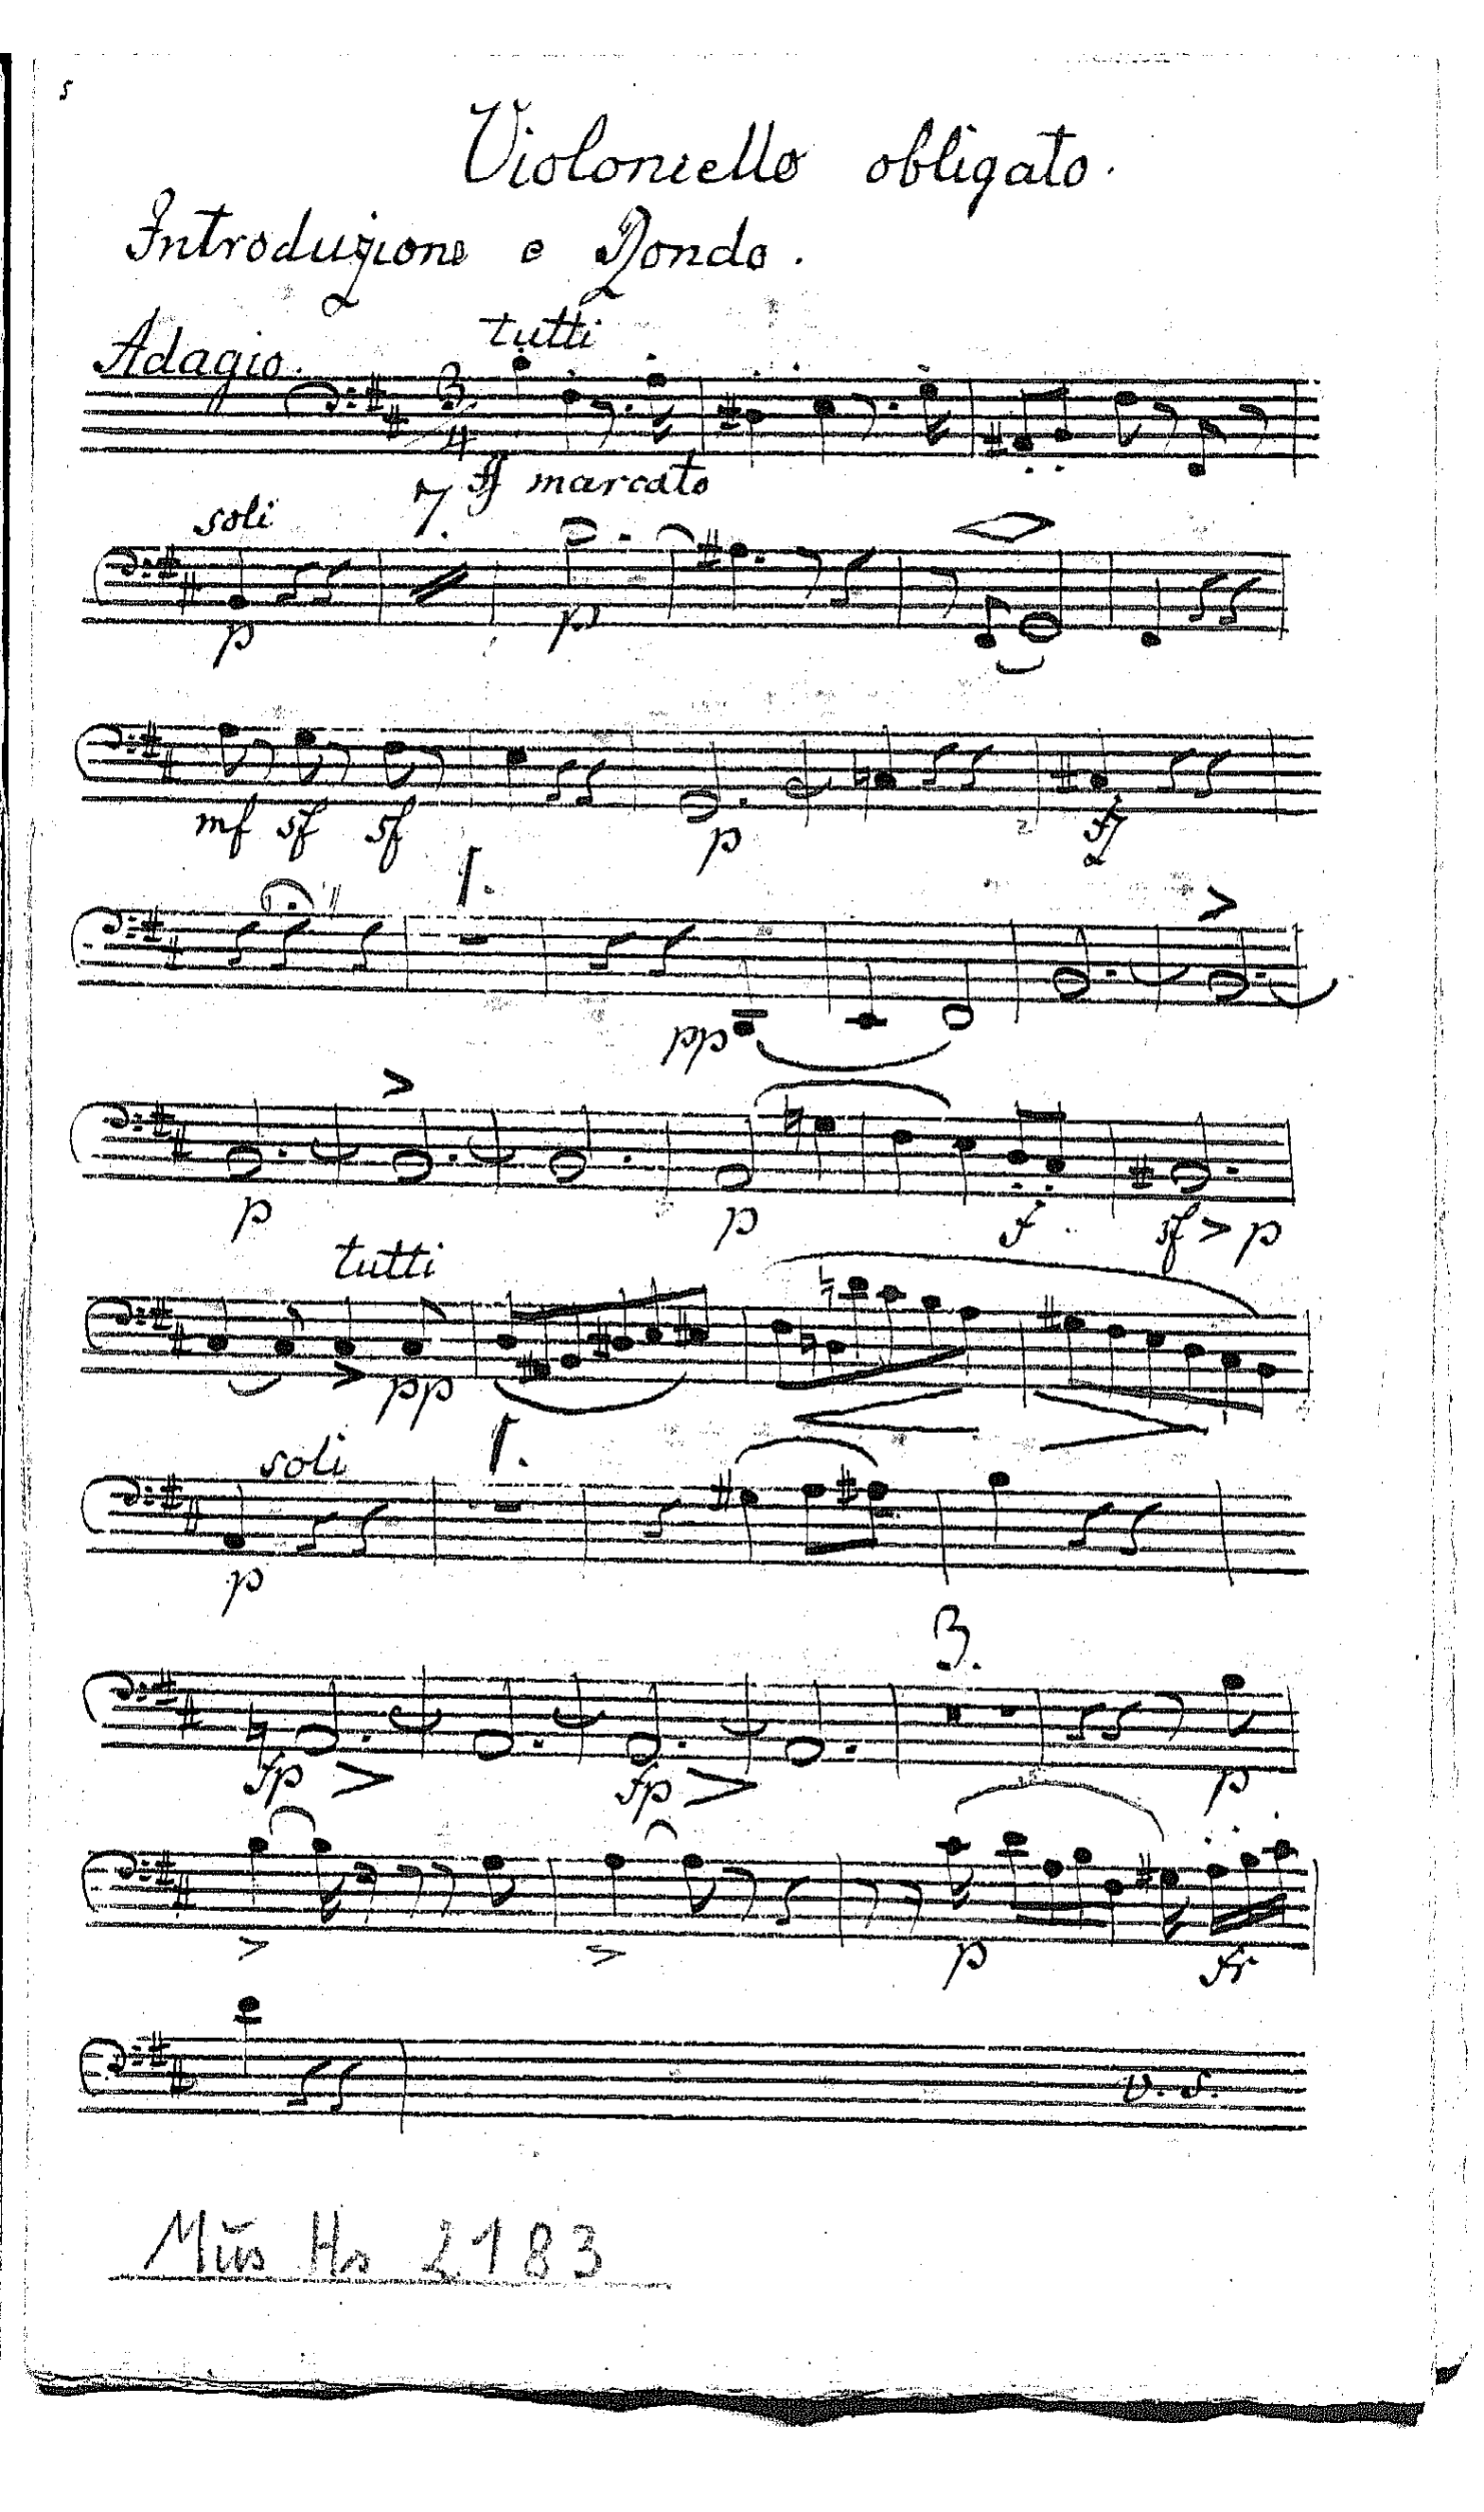 5
Violoncello obligato.
Introduzione e Rondo.
Adagio. tutti
3/4
ff marcato
soli 7.
p p
mf sf sf p
1.
pp
p p f sf p
tutti
pp
soli 1.
p
3.
fp fp p
p
v. s.
Mus Hs 2183